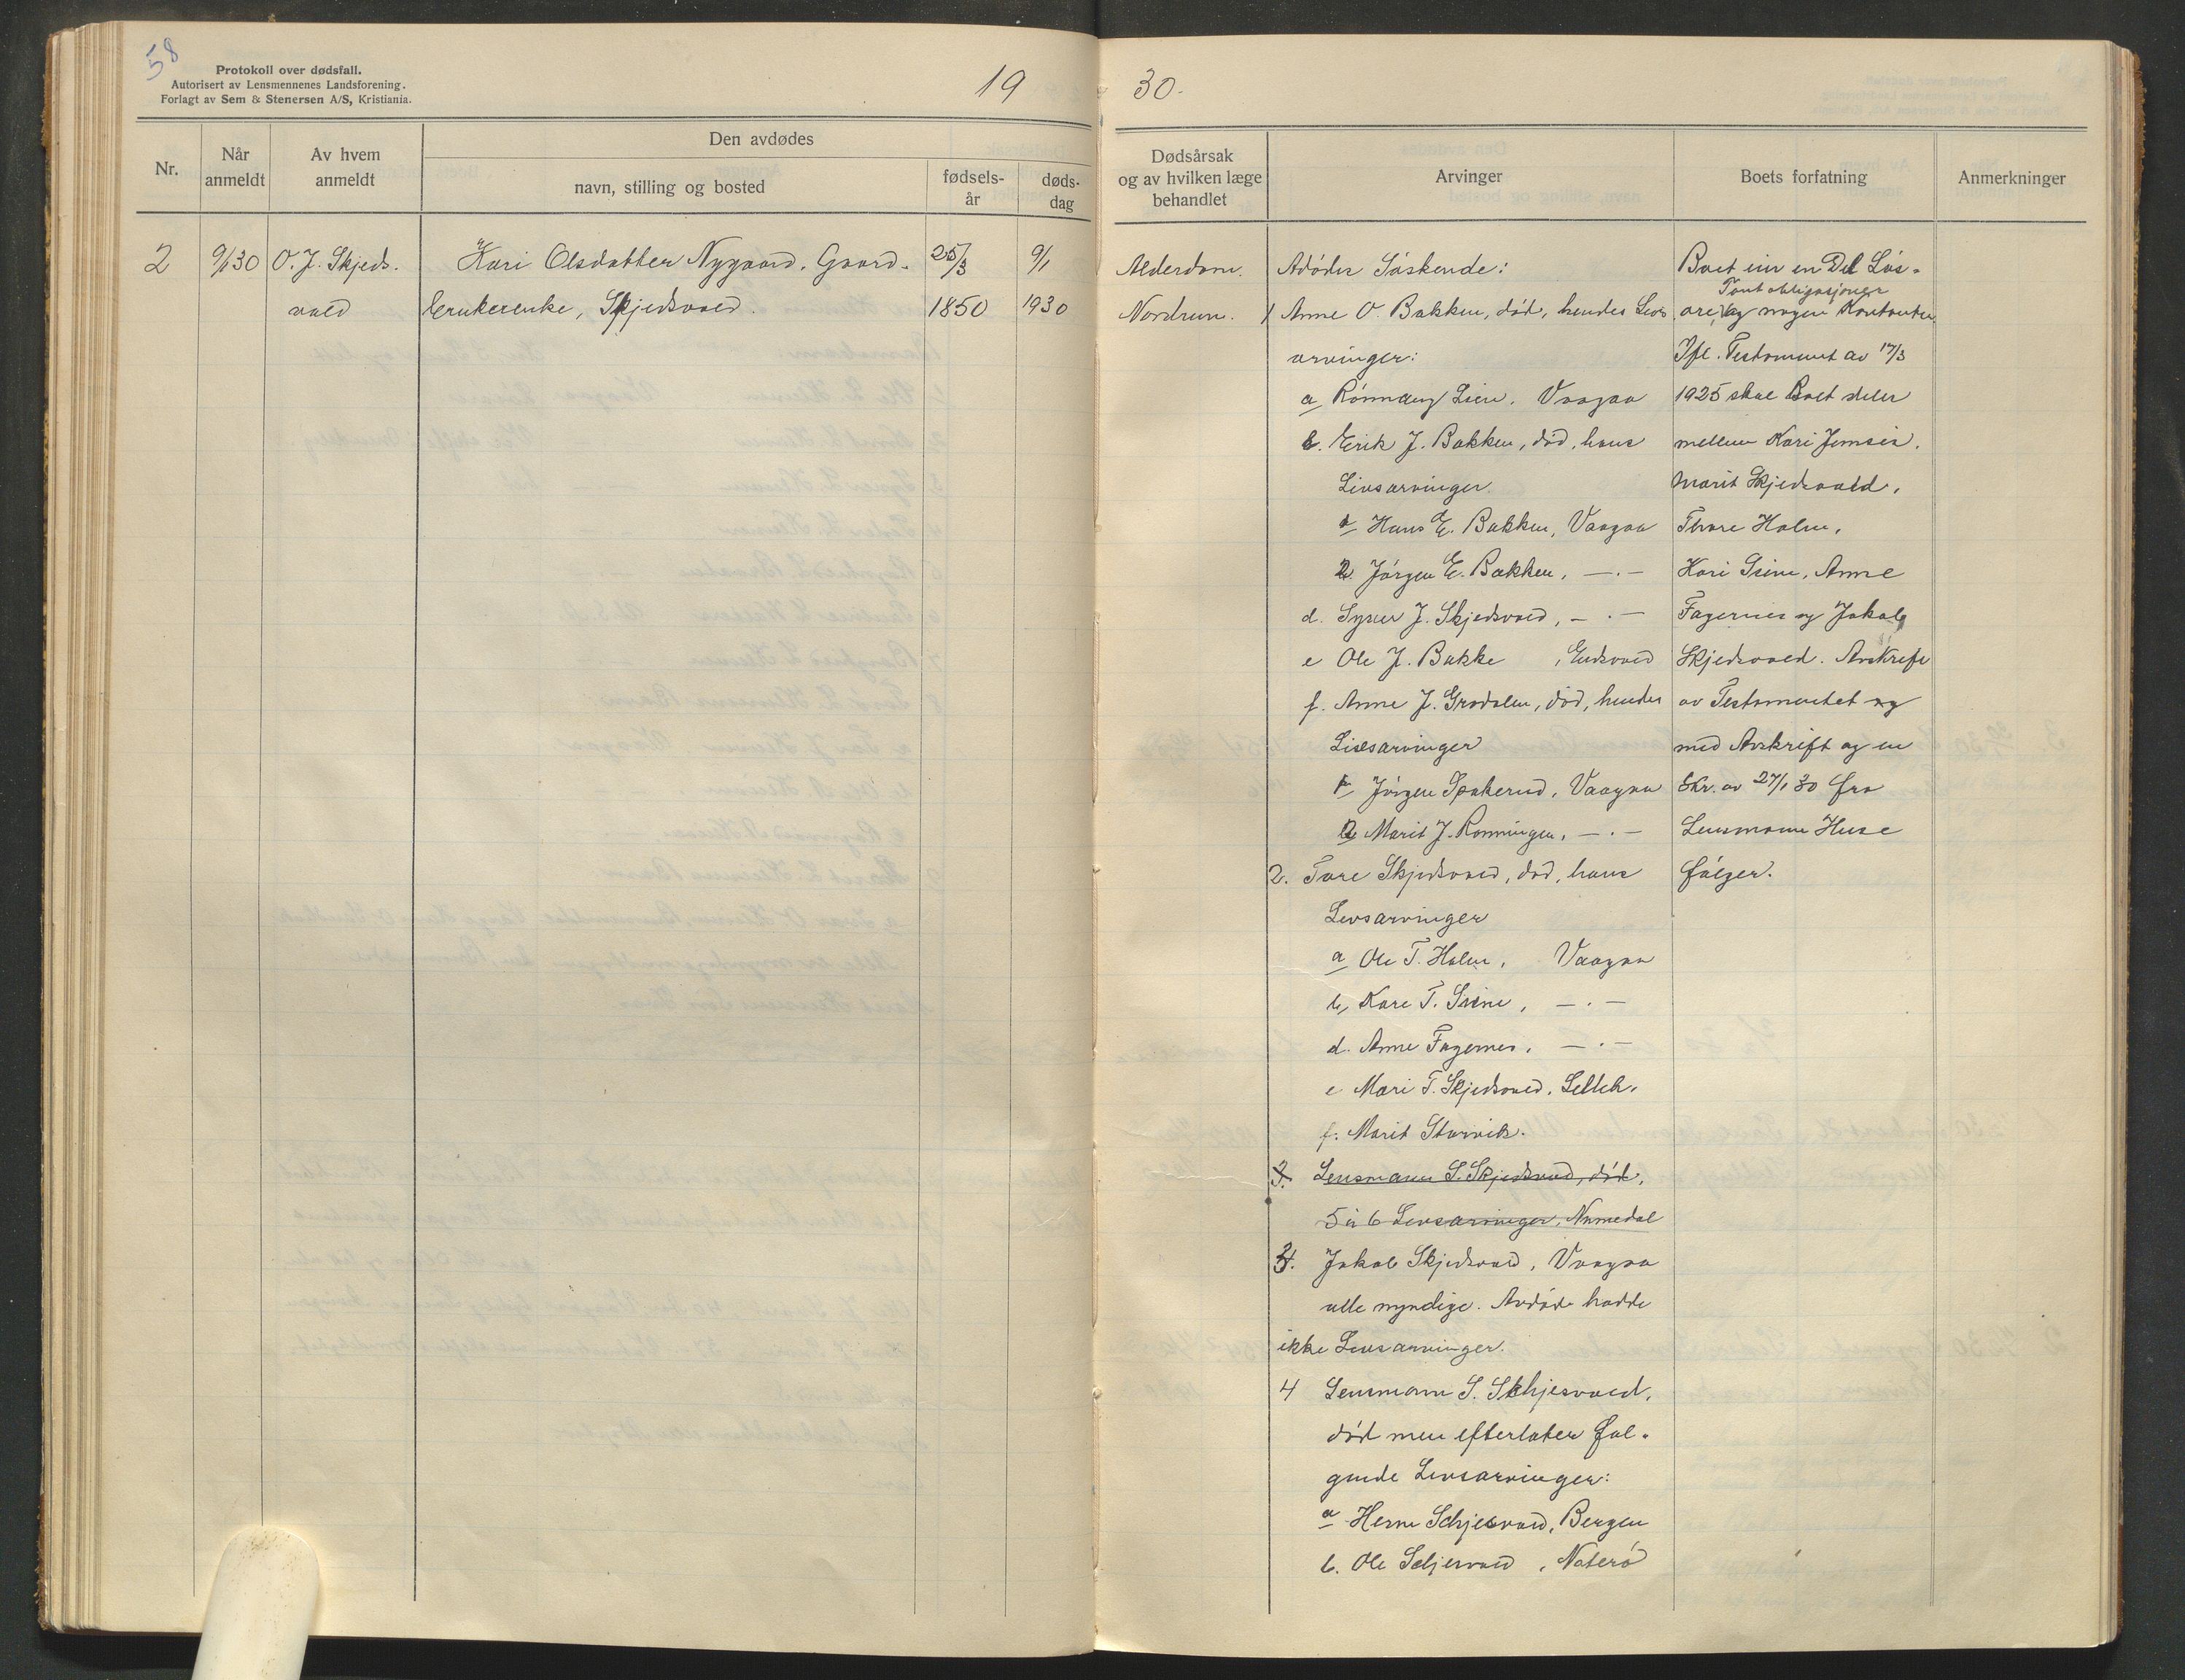 58
Protokoll over dødsfall.
Autorisert av Lensmennenes Landsforening.
Forlagt av Sem & Stenersen A/S, Kristiania.
19
30.
Nr.
Når anmeldt
Av hvem anmeldt
Den avdødes
navn, stilling og bosted
fødsels-år
døds-dag
Dødsårsak og av hvilken læge behandlet
Arvinger
Boets forfatning
Anmerkninger
2
9/1 30
O. J. Skjeds-
vold
Kari Olsdatter Nygaard. Gaard-
brukerenke, Skjedsvold.
25/3
1850
9/1
1930
Alderdom.
Nordrum.
Adødes Søskende:
1 Anne O. Bakken, død, hendes Livs
arvinger:
a Rønnaug Lien. Vaagaa
b. Erik J. Bakken, død, hans
Livsarvinger.
1 Hans E. Bakken, Vaagaa
2. Jørgen E. Bakken, — . —
d. Syver J. Skjedsvold, — . —
e Ole J. Bakke , Eidsvold
f. Anne J. Grodalen, død, hendes
Livsarvinger
1 Jørgen Spakerud, Vaagaa
2 Marit J. Rønningen, — . —
2. Tore Skjedsvold, død, hans
Livsarvinger
a Ole T. Holm, Vaagaa
b, Kare T. Sveine, — . —
d. Anne Fagernes. — . —
e Mari T. Skjedsvold. Lilleh.
f. Marit Storvik.
3. Lensmann S. Skjedsvold, død,
5 à 6 Livsarvinger, Numedal
3. Jakob Skjedsvold, Vaagaa
alle myndige. Avdøde hadde
ikke Livsarvinger.
4 Lensmann S. Skhjesvold,
død men efterlater føl-
gende Livsarvinger:
a Herm Schjesvold, Bergen
b. Ole Schjesvold , Nøterø
Boet eier en Del Løs-
Pantobligasjoner
øre, og nogen Kontanter.
Ifl. Testament av 17/3
1925 skal Boet deles
mellem Kari Jemsis.
Marit Skjedsvold,
Thore Holm,
Kari Sveine, Anne
Fagernes og Jakob
Skjedsvold. Avskrift
av Testamentet og
med Avskrift og en
Skr. av 27/1 30 fra
Lensmann Huse
følger.